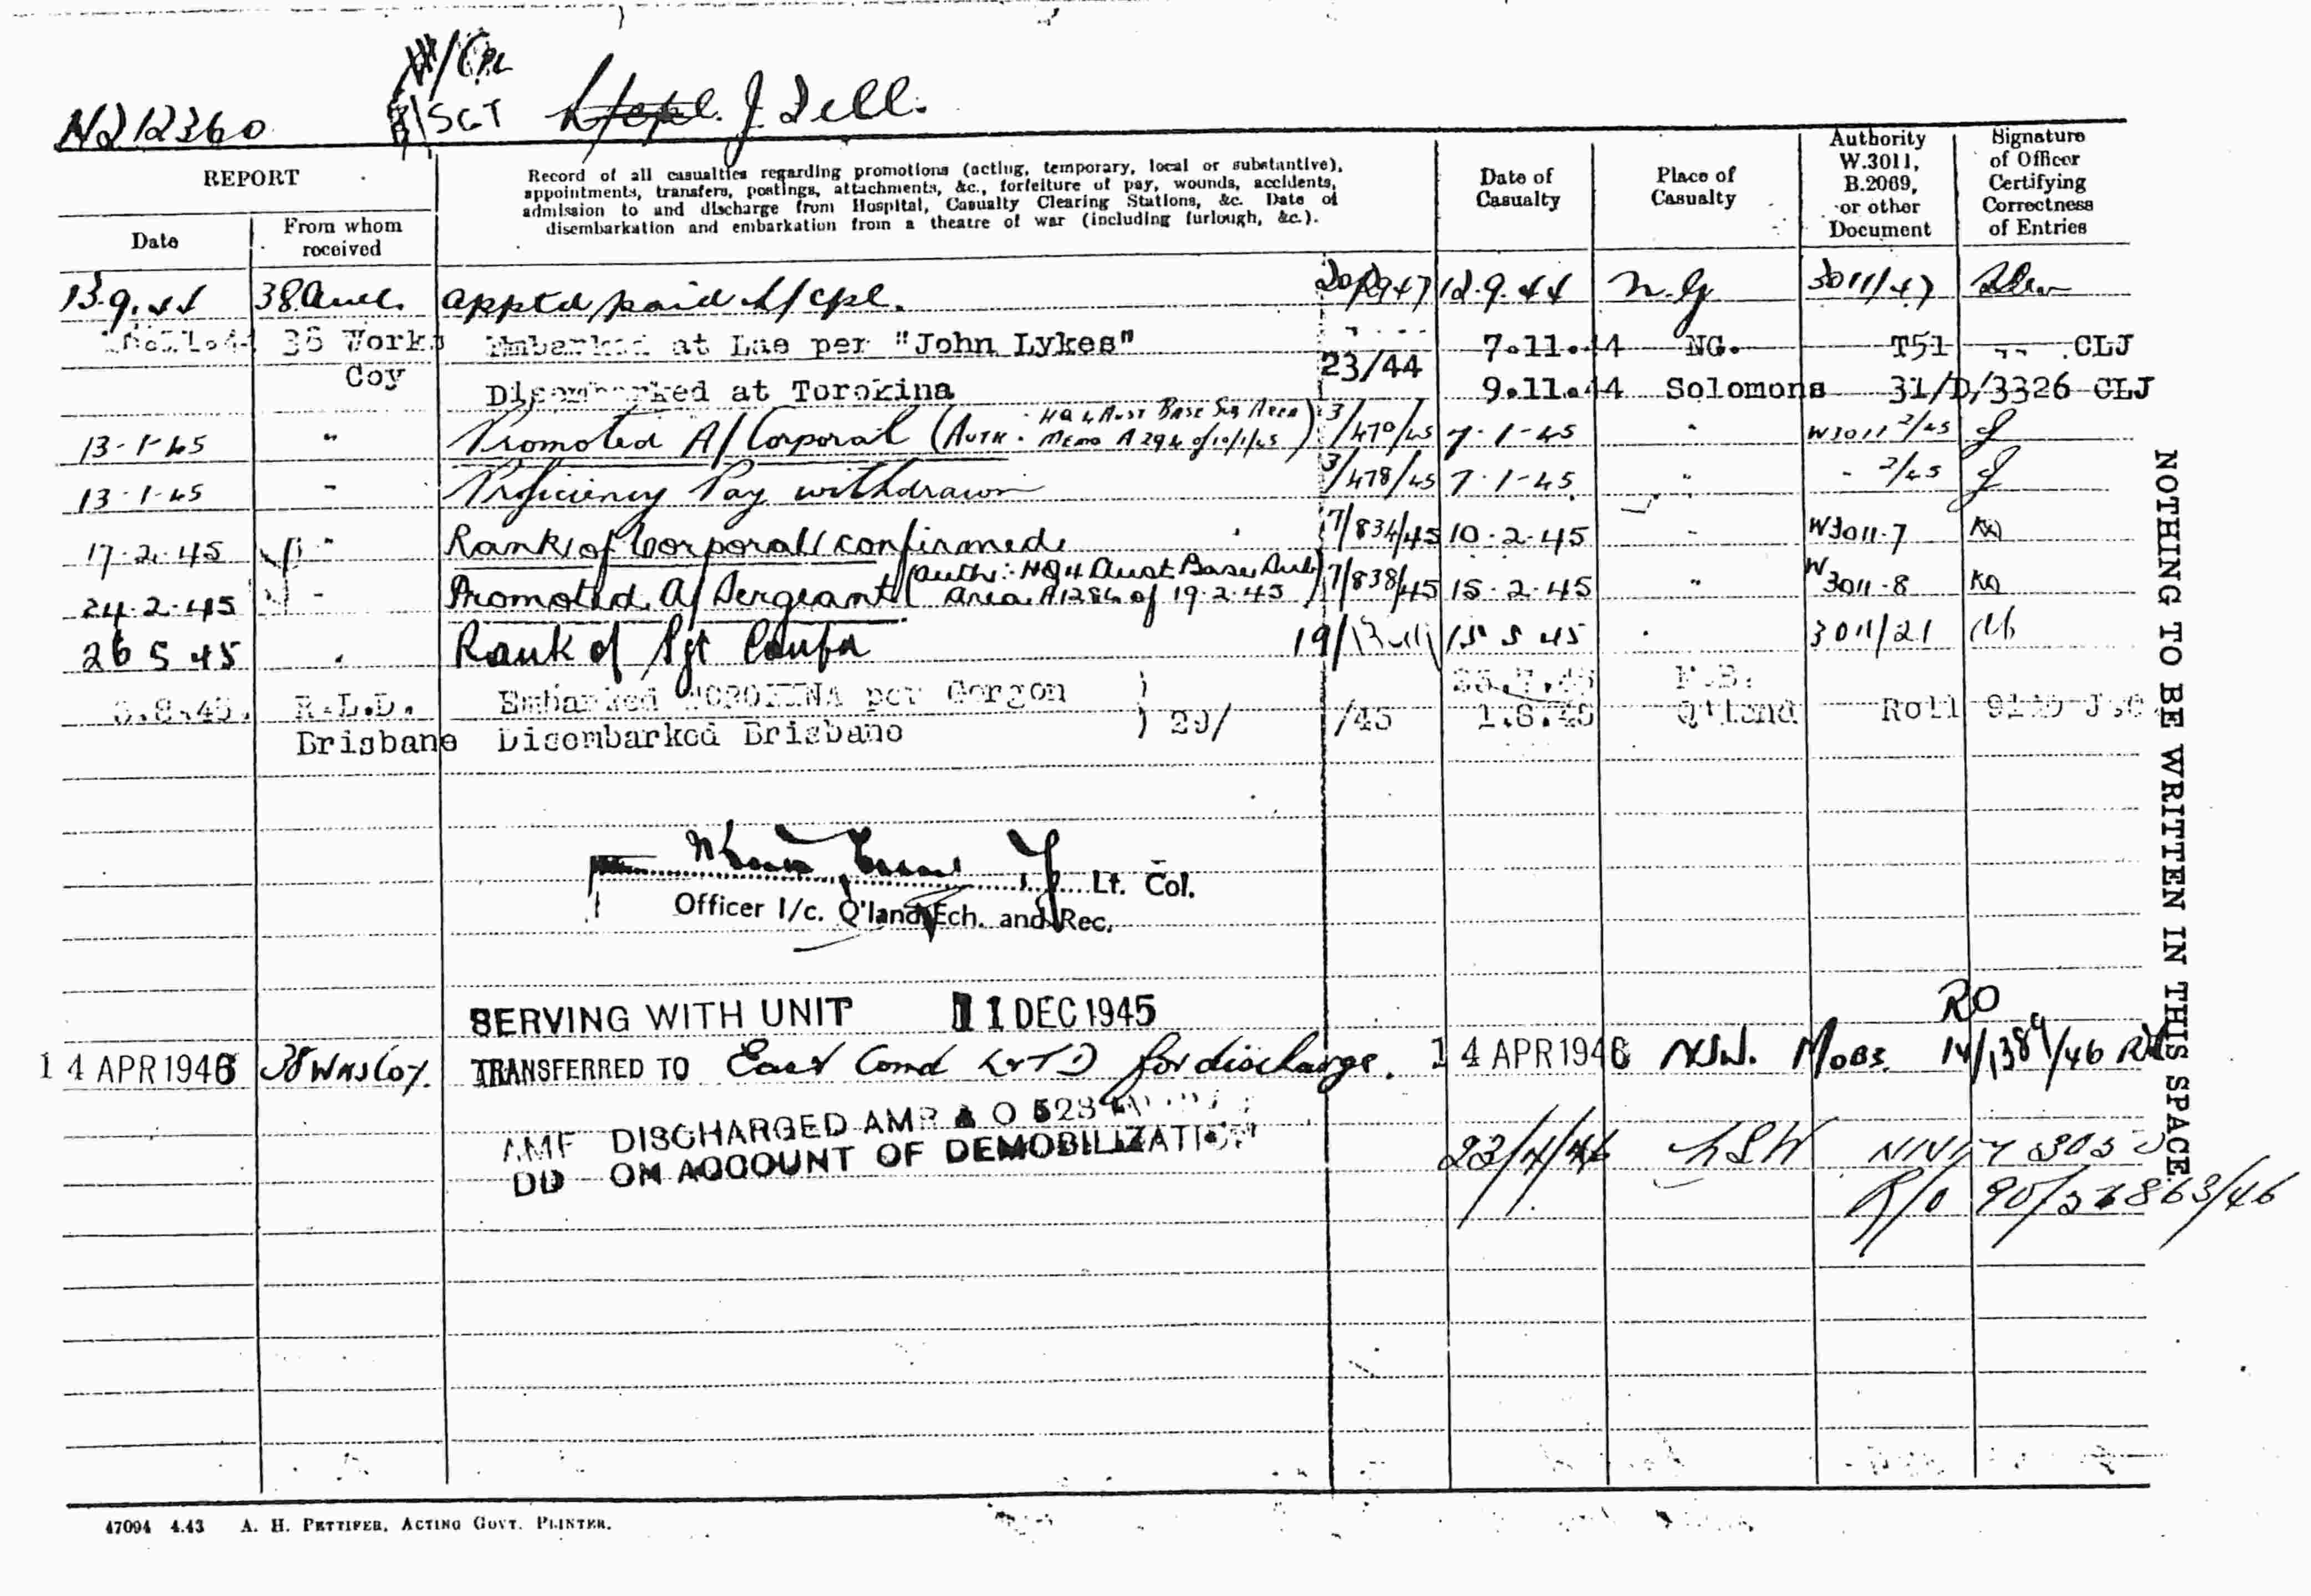 /Cpl
N212360 /SGT L/cpl. J.
REPORT
Date
From whom received
Record of all casualties regarding promotions (acting, temporary, local or substantive),
appointments, transfers, postings, attachments, &c., forfeiture of pay, wounds, accidents,
admission to and discharge from Hospital, Casualty Clearing Stations, &c. Date of
disembarkation and embarkation from a theatre of war (including furlough, &c.).
Date of Casualty
Place of Casualty
Authority W.3011, B.2069, or other Document
Signature of Officer Certifying Correctness of Entries
13.9.44 appted paid L/cpl. 12.9.44 N.G 3011/47
36 Works Embarked at Lae per "John Lykes" 7.11.44 NG. T51 CLJ
Coy 23/44
Disembarked at Torokina 9.11.44 Solomons 31/D/3326 CLJ
13-1-45 " Promoted A/Corporal (Auth. HQ 4 Aust Base Sub Area Memo A294 of 10/1/45) 3/470/45 7-1-45 " W3011 2/45
13-1-45 - Proficiency Pay withdrawn 3/478/45 7-1-45 " - 2/45
17-2-45 " Rank of Corporal confirmed 7/834/45 10-2-45 - W3011-7
24-2-45 - Promoted A/Sergeant (Auth:- HQ 4 Aust Base Sub Area A1286 of 19-2-45) 7/838/45 15-2-45 " W3011-8
26 5 45 Rank of Sgt 19/ 15 5 45 3011/21
R.L.D. Embarked TOROKINA per Gorgon )
) 29/ /45 1.8.45 Q'land Roll
Brisbane Disembarked Brisbane )
Lt. Col.
Officer I/c. Q'land Ech. and Rec.
SERVING WITH UNIT 11 DEC 1945
RO
14 APR 1946 38 Wks Coy. TRANSFERRED TO East Comd L&TD for discharge. 14 APR 1946 NSW. 14/1389/46
AMF DISCHARGED AMR & O 528
DD ON ACCOUNT OF DEMOBILIZATION 23/4/46
R/O
NOTHING TO BE WRITTEN IN THIS SPACE.
47094 4.43 A. H. PETTIFER, ACTING GOVT. PRINTER.